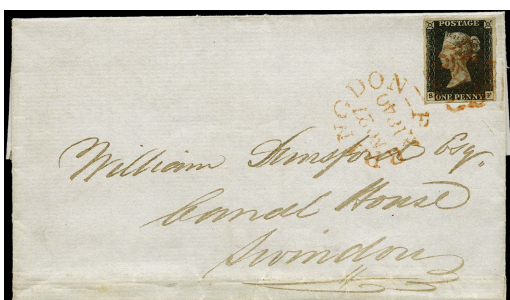 POSTAGE
ONE PENNY
William Dunsford Esq.
Canal House
Swindon